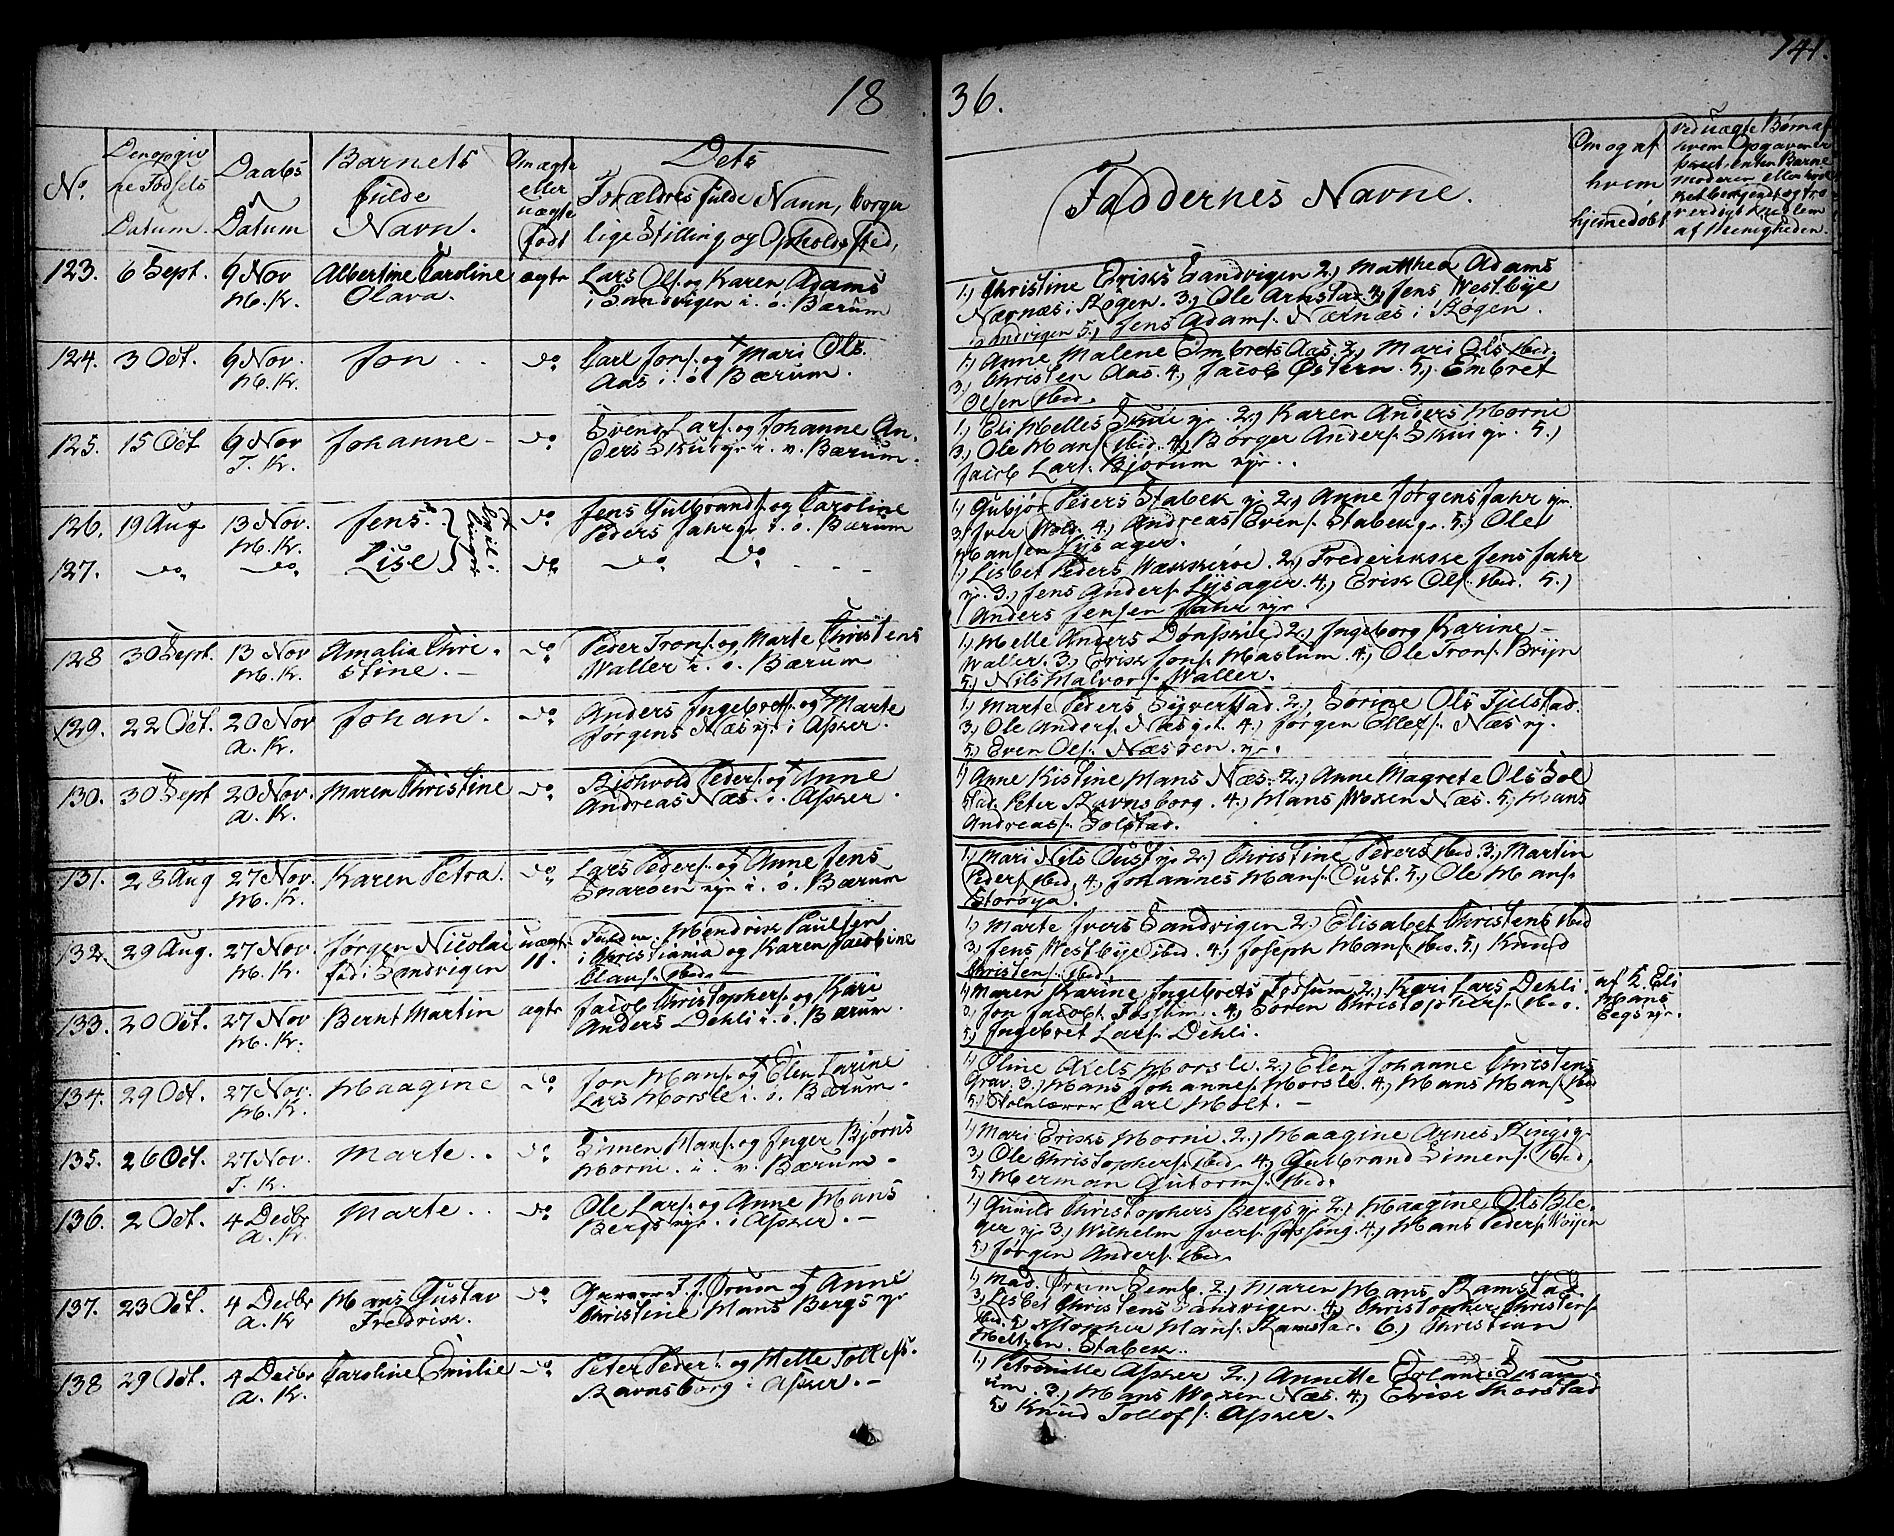 18 36.
141.
No.
Den opgiv
ne Fødsels
Datum.
Daabs
Datum
Barnets
fulde
Navn.
Om ægte
eller
uægte
født
Dets
Forældres fulde Navn, borger
lige Stilling og Opholdssted,
Faddernes Navne.
Om og af
hvem
hjemedøbt
ved uægte Børn af
hvem Opgaven er
skeet, enten Barne
moderen eller
af Menigheden.
123. 6 Sept. 9 Nov H. K. Albertine Caroline Olava. ægte
Lars Ols. og Karen Adams
i Sandvigen i. ø. Bærum
1.) Christine Eriks Sandvigen 2.) Matthea Adams
Nærnæs i Røgen. 3.) Ole Arnstad. 4.) Jens Westbye
Sandvigen 5.) Jens Adams. Nærnæs i Røgen.
124. 3 Oct. 9 Nov. H. K. Jon. do
Carl Jons. og Mari Ols.
Aas i ø. Bærum.
1.) Anne Malene Embrets Aas. 2.) Mari Ols ibid.
3.) Christen Aas. 4.) Jacob Østern. 5.) Embret
Olsen ibid.
125. 15 Oct 9 Nov T. K. Johanne do
Svend Lars. og Johanne An-
ders Skui ejr i. v. Bærum.
1.) Eli Helles Skui ejr. 2.) Karen Anders Horni
3.) Ole Hans. ibid. 4.) Børger Anders. Skui ejr. 5.)
Jacob Lars. Bjørum ejr.
126. 19 Aug 13 Nov. H. K. Jens. do
Jens Gulbrands. og Caroline
Peders Jahr gr i. ø. Bærum
1.) Gubjør Peders Stabek ejr 2.) Anne Jørgens Jahr ejr
3.) Iver 4.) Andreas Evens. Stabek gr. 5.) Ole
Hansen Lysager.
127. do do Lise do do do
Tvil linger
1.) Lisbet Peders Wækkerøe. 2.) Frederikke Jens Jahr
ejr. 3.) Jens Anders. Lysager. 4.) Erik Ols. ibid. 5.)
Anders Jensen Jahr ejr.
128 30 Sept. 13 Nov H. K. Amalia Chri-
stine. do
Peder Trons. og Marte Christens
Waller i. ø. Bærum
1.) Helle Anders Dønskie 2.) Ingeborg Karine
Waller. 3.) Erik Jons. Haslum. 4.) Ole Trons. Bryn
5.) Nils Halvors. Waller.
129. 22 Oct. 20 Nov A. K. Johan. do
Anders Ingebrets. og Marte
Jørgens Næs ejr. i Asker.
1.) Marte Peders Syverstad. 2.) Sørine Ols Tjelstad.
3.) Ole Anders. Næs gt. 4.) Jørgen Ellefs. Næs ej.
5.) Even Ols. Næsøen ejr.
130. 30 Sept 20 Nov. A. K. Maren Christine do
Bjøhvold Peders. og Anne
Andreas Næs. i. Asker.
1.) Anne Kistine Hans Næs. 2.) Anne Magrete Ols Sol
stad. Peter Ravnsborg. 4.) Hans Woxen Næs. 5.) Hans
Andreass. Solstad.
131. 28 Aug 27 Nov. H. K. Karen Petra. do
Lars Peders. og Anne Jens
Snarøen ejr i. ø. Bærum
1.) Mari Nils Oust ejr 2.) Christine Peders ibid. 3.) Martin
Peders. ibid. 4.) Johannes Hans. Oust. 5.) Ole Hans.
Storøya.
132. 29 Aug. 27 Nov. H. K. Jørgen Nicolai
fød i Sandvigen uægte 11.
Fuldm. Hendrik Paulsen
i Christiania og Karen Jacobine
Claus. ibid.
1.) Marte Ivers Sandvigen 2.) Elisabet Christens ibid
3.) Jens Westbye ibid. 4.) Joseph Hans. ibid. 5.) Knud
Christens. ibid.
133. 20 Oct. 27 Nov H. K. Bernt Martin ægte
Jacob Christophers. og Kari
Anders Dehli i. ø. Bærum.
1.) Maren Karine Ingebrets Fossum. 2.) Kari Lars Dehli.
3.) Jon Jacobs. Fossum. 4.) Søren Christophers. ibid.
5.) Ingebret Lars. Dehli.
af K. Eli
Hans
Eegs ejr.
134. 29 Oct. 27 Nov. H. K. Haagine do
Jon Hans. og Elen Larine
Lars Horsle i. ø. Bærum.
1.) Oline Axels Horsle. 2.) Elen Johanne Christens
Grav. 3.) Hans Johannes. Horsle. 4.) Hans Hans. ibid
5.) Skolelærer Carl Holt.
135. 26 Oct. 27 Nov. T. K. Marte. do
Simen Hans. og Inger Bjørns
Horni. i. v. Bærum.
1.) Mari Eriks Horni. 2.) Haagine Arnes
3.) Ole Christophers. ibid. 4.) Gulbrand Simens. ibid.
5.) Herman Gutorms. ibid.
136. 2 Oct. 4 Decbr A. K. Marte. do
Ole Lars. og Anne Hans
Bergs ejr. i Asker.
1.) Gunild Christophers Bergs ej. 2.) Haagine Ols Ble-
ger ej. 3.) Wilhelm Ivers. Jossong. 4.) Hans Peders. Wøyen
5.) Jørgen Anders. ibid.
137. 23 Oct. 4 Decbr A. K Hans Gustav
Fredrik. do
J. J. Ørum og Anne
Christine Hans Bergs ejr
1.) Mad. Ørum Semb. 2.) Maren Hans Ramstad.
3.) Lisbet Christens Sandvigen. 4.) Christopher Christens.
ibid. 5.) Kstopher Hans. Ramstad. 6.) Christian
Meltzen. Stabek.
138 29 Oct. 4 Decbr A. K. Caroline Emilie do
Peter Peders. og Helle Tollefs.
Ravnsborg i Asker.
1.) Petronille Asker 2.) Annette Erlands. Skau-
um. 3.) Hans Woxen Næs. 4.) Erik Thorstad
5.) Knud Tollofs. Asker.